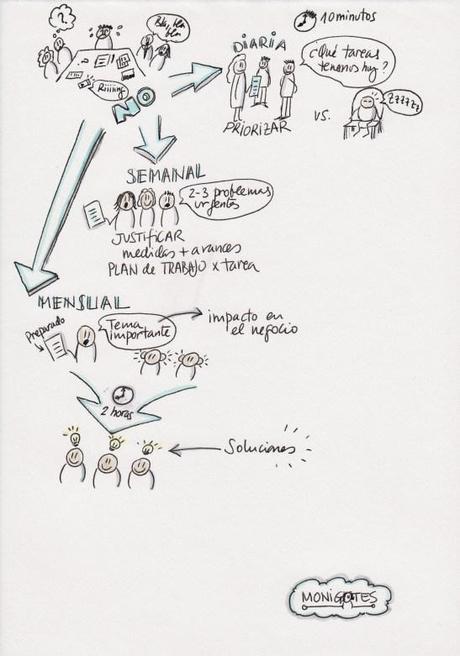 ?
Bla, bla
bla
Riiiing
NO
10 minutos
DIARIA
¿Qué tareas
tenemos hoy?
PRIORIZAR
vs.
ZZZZZZ
SEMANAL
2-3 problemas
urgentes
JUSTIFICAR
medidas + avances
PLAN de TRABAJO x tarea
MENSUAL
Preparado
Tema
importante
impacto en
el negocio
2 horas
Soluciones
MONIGOTES